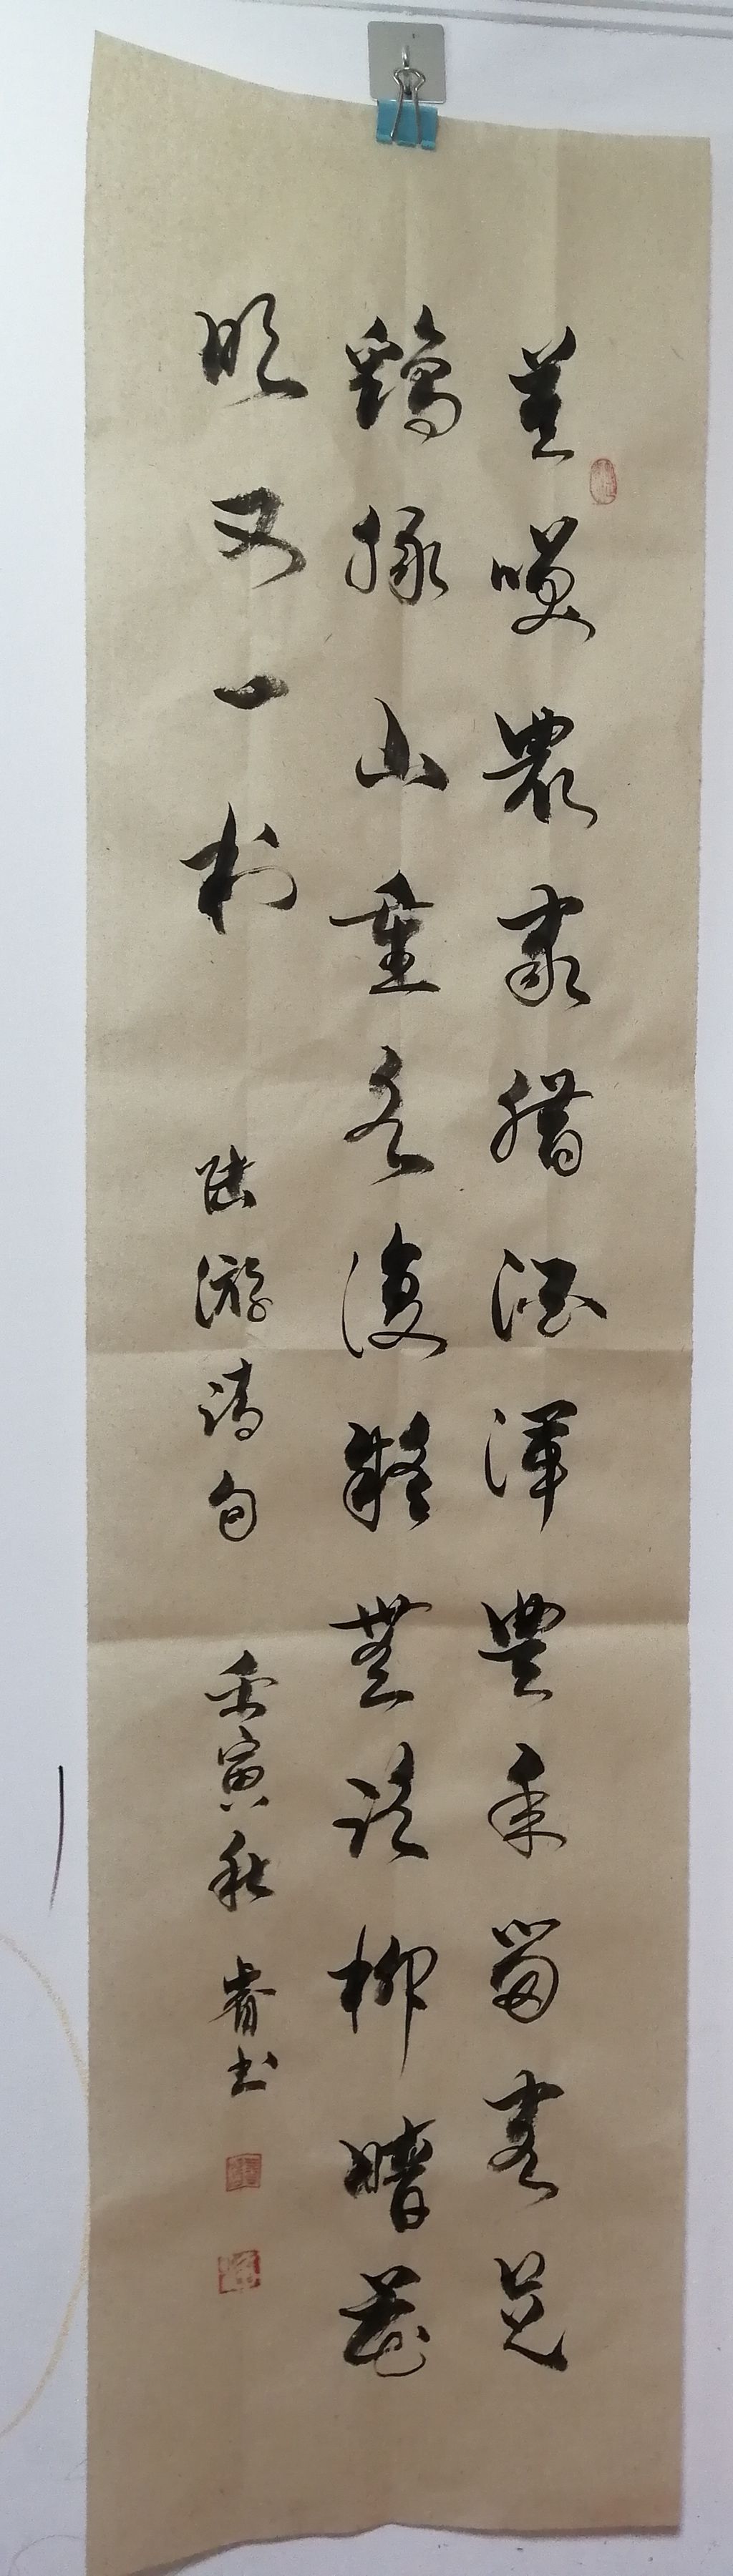 莫唉農家腊酒渾豊年留客足
鷄豚山重水復疑無路柳暗花
明又一村 陸游詩句 壬寅秋 睿书